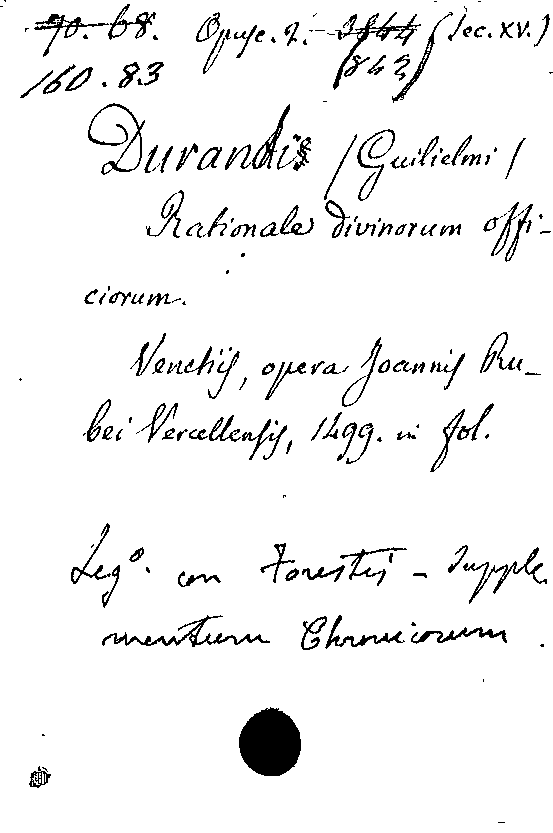 70. 68. Opusc. 2. 3844 (Sec. XV.)
160.83 (842)
Durandis (Guilielmi)
Rationale divinorum offi-
ciorum.
Venetijs, opera Joannis Ru-
bei Vercellensis, 1499. in fol.
Leg.º con Forestis - Supple
mentum Chronicorum.